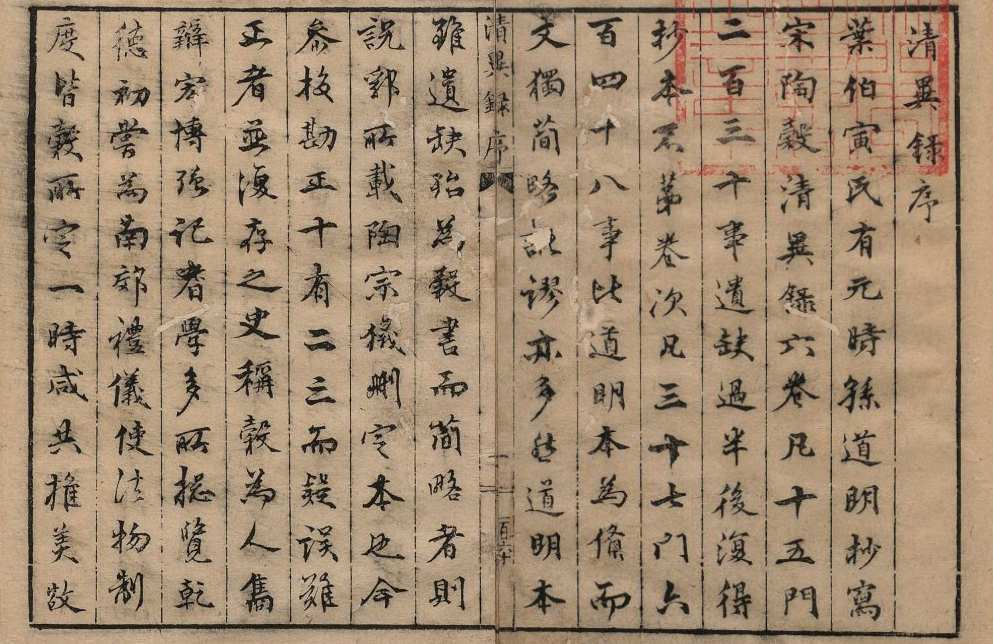 清異錄序
葉伯寅氏有元時孫道明抄寫
宋陶穀清異錄六卷凡十五門
二百三十事遺缺過半後復得
抄本不第卷次凡三十七門六
百四十八事比道明本為俻而
文獨簡略訛謬亦多然道明本
清異錄序
雖遺缺殆為穀書而簡略者則
說郛所載陶宗儀刪定本也今
叅校勘正十有二三而疑误難
正者並復存之史稱穀為人雋
辯宏博强記耆學多所揔覽乾
德初嘗為南郊禮儀使法物制
度皆穀所定一時咸共推美故